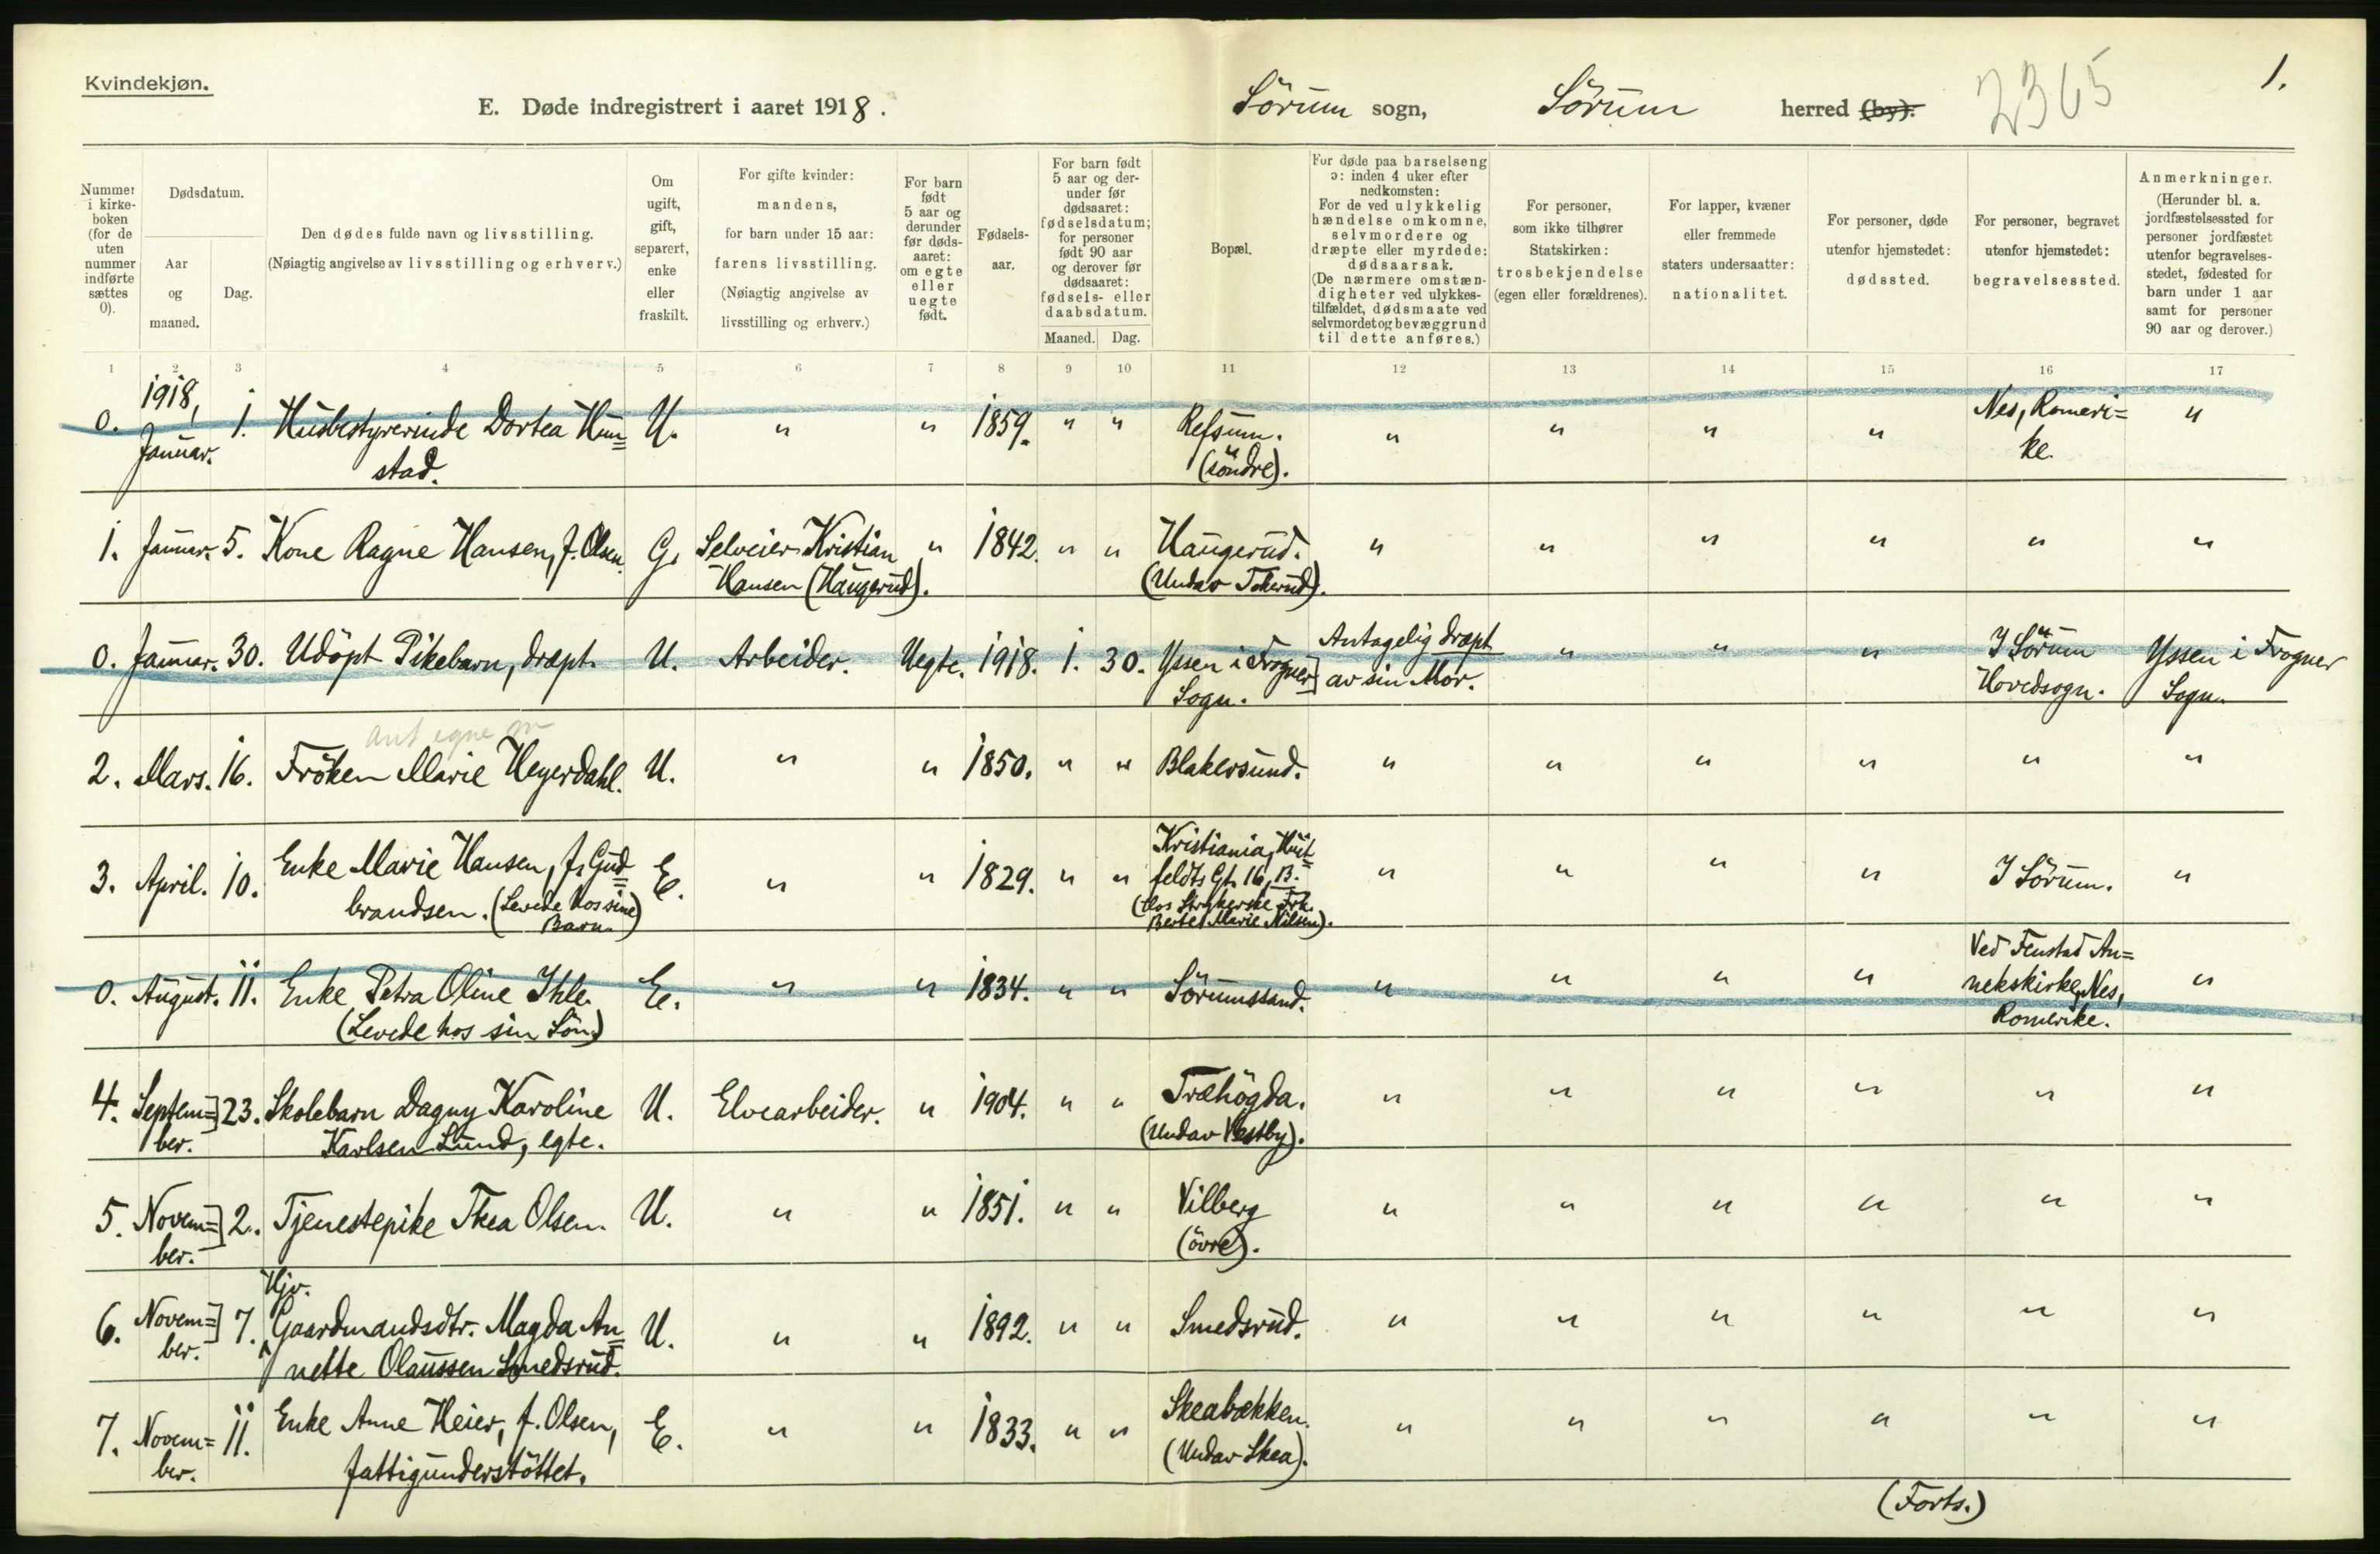 Kvindekjøn.
E. Døde indregistrert i aaret 1918. Sörum sogn, Sörum herred (by). 2365 1.
Nummer i kirke-boken (for de uten nummer indførte sættes 0).
Dødsdatum.
Aar og maaned.
Dag.
Den dødes fulde navn og livsstilling.
(Nøiagtig angivelse av livsstilling og erhverv.)
Om ugift, gift, separert, enke eller fraskilt.
For gifte kvinder: mandens, for barn under 15 aar: farens livsstilling.
(Nøiagtig angivelse av livsstilling og erhverv.)
For barn født 5 aar og derunder før døds-aaret: om egte eller uegte født.
Fødsels-aar.
For barn født 5 aar og der-under før dødsaaret: fødselsdatum; for personer født 90 aar og derover før dødsaaret: fødsels- eller daabsdatum.
Maaned. Dag.
Bopæl.
For døde paa barselseng ɔ: inden 4 uker efter nedkomsten:
For de ved ulykkelig hændelse omkomne, selvmordere og dræpte eller myrdede: dødsaarsak.
(De nærmere omstæn-digheter ved ulykkes-tilfældet, dødsmaate ved selvmordet og bevæggrund til dette anføres.)
For personer, som ikke tilhører Statskirken: trosbekjendelse (egen eller forældrenes).
For lapper, kvæner eller fremmede staters undersaatter: nationalitet.
For personer, døde utenfor hjemstedet: dødssted.
For personer, begravet utenfor hjemstedet: begravelsessted.
Anmerkninger.
(Herunder bl. a. jordfæstelsessted for personer jordfæstet utenfor begravelses-stedet, fødested for barn under 1 aar samt for personer 90 aar og derover.)
1 2 3 4 5 6 7 8 9 10 11 12 13 14 15 16 17
0. 1918, Januar. 1. Husbestyrerinde Dortea Hun= U. " " 1859. " " Refsum. " " " " Nes, Romeri= "
stad. (söndre). ke.
1. Januar. 5. Kone Ragne Hansen, f. Olsen. G. Selveier Kristian " 1842. " " Haugerud. " " " " " "
Hansen (Haugerud). (Undav Tokerud).
0. Januar. 30. Udöpt Pikebarn, dræpt. U. Arbeider. Uegte. 1918. 1. 30. Yssen i Frogner Antagelig dræpt " " " I Sörum Yssen i Frogner
Sogn. av sin Mor. Hovedsogn. Sogn.
ant egne m
2. Mars. 16. Fröken Marie Heyerdahl. U. " " 1850. " " Blakersund. " " " " " "
3. April. 10. Enke Marie Hansen, f. Gud= E. " " 1829. " " Kristiania, Huit= " " " " I Sörum. "
brandsen. (Levede hos sine Barn.) feldts Gt. 16, B.
(Hos Strykerske Frk. Berte Marie Nilsen).
0. August. 11. Enke Petra Oline Ihle. E. " " 1834. " " Sörumssand. " " " " Ved Fenstad An=
nekskirke, Nes, "
(Levede hos sin Sön.) Romerike.
4. Septem= 23. Skolebarn Dagny Karoline U. Elvearbeider. " 1904. " " Træhögda. " " " " " "
ber. Karlsen Lund, egte. (Undav Vestby).
5. Novem= 2. Tjenestepike Thea Olsen. U. " " 1851. " " Vilberg " " " " " "
ber. (övre).
Hjv.
6. Novem= 7. Gaardmandsdtr. Magda An= U. " " 1892. " " Smedsrud. " " " " " "
ber. nette Olaussen Smedsrud.
7. Novem= 11. Enke Anne Heier, f. Olsen, E. " " 1833. " " Skeabækken. " " " " " "
ber. fattigunderstöttet. (Undav Skea).
(Forts.)